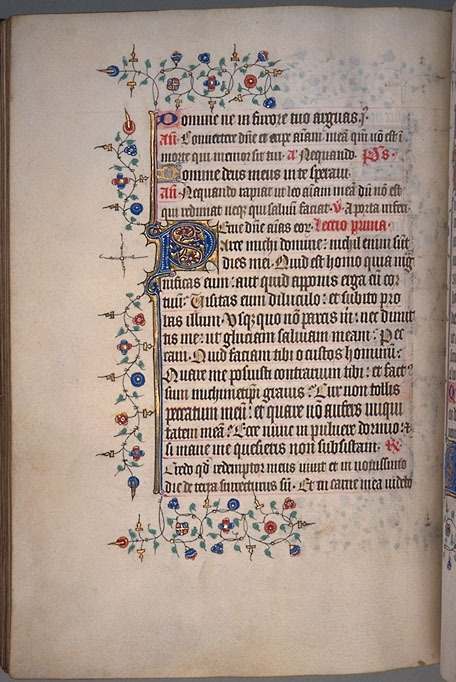 Domine ne in furore tuo arguas
añ. Convertere dñe et eripe aiam meã qm̃ nõ est ĩ
morte qui memor sit tui. a. Nequando. p̃s.
Domine deus meus in te speravi.
añ. Nequando rapiat ut leo aiam meã dũ nõ est
qui redimat neqꝫ qui saluũ faciat. v̉. A porta inferi.
Erue dñe aĩas eoꝝ. Lectio prima.
Parce michi domine: nichil enim sũt
dies mei. Quid est homo quia mag
nificas eum: aut quid apponis erga eũ cor
tuũ: Visitas eum diluculo: et subito pro
bas illum. Usqꝫ quo nõ parcis m̃: nec dimit
tis me: ut gluciam saliuam meam: Pec
caui. Quid faciam tibi o custos hominũ:
Quare me posuisti contrarium tibi: et fact⁹
sum michimetip̃i grauis: Cur non tollis
peccatum meũ: et quare nõ aufers iniqui
tatem meã: Ecce nunc in puluere dormio: ⁊
si mane me quesieris non subsistam. R̷
Credo qd̃ redemptor meus uiuit et in nouissimo
die de terra surrecturus sũ. Et in carne mea uidebo